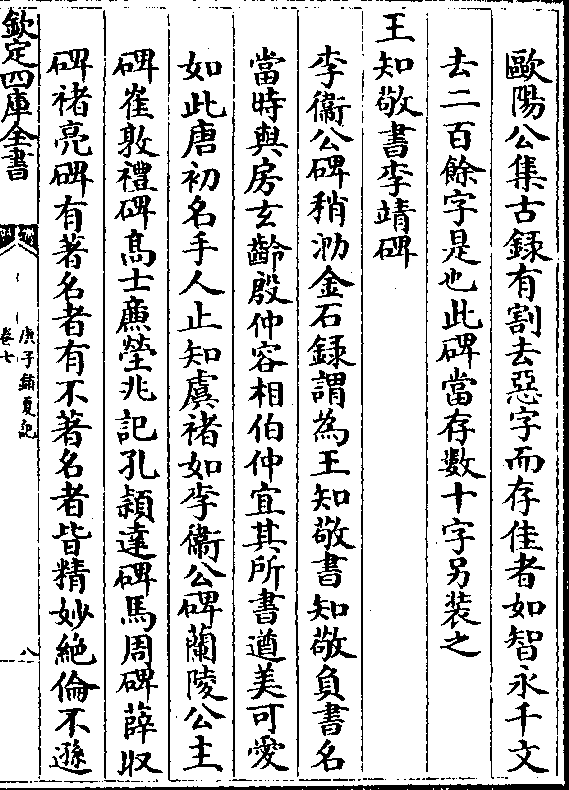 歐陽公集古録有割去惡字而存佳者如智永千文
去二百餘字是也此碑當存数十字另装之
王知敬書李靖碑
李衞公碑稍泐金石録謂為王知敬書知敬負書名
當時與房玄齡殷仲容相伯仲宜其所書遒美可愛
如此唐初名手人止知虞褚如李衞公碑蘭陵公主
碑崔敦禮碑髙士亷塋兆記孔頴達碑馬周碑薛収
碑褚亮碑有著名者有不著名者皆精妙絶倫不遜
欽定四庫全書
庚子銷夏記
卷七
八